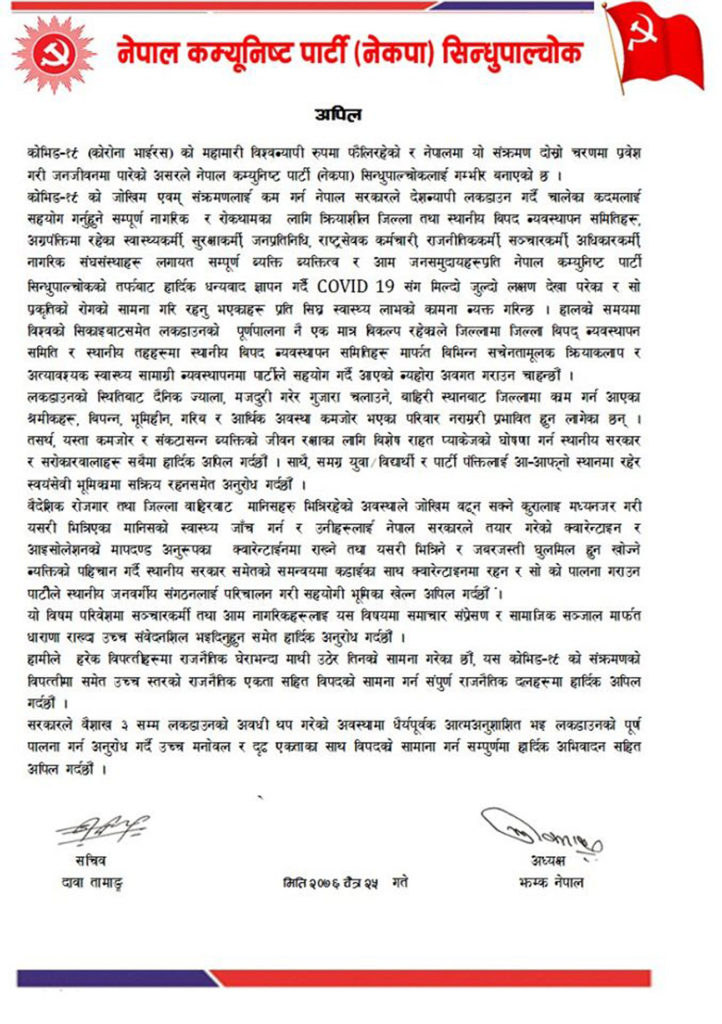 नेपाल कम्यूनिष्ट पार्टी (नेकपा) सिन्धुपाल्चोक
अपिल
कोभिड-१९ (कोरोना भाईरस) को महामारी विश्वव्यापी रुपमा फैलिरहेको र नेपालमा यो संक्रमण दोस्रो चरणमा प्रवेश
गरी जनजीवनमा पारेको असरले नेपाल कम्युनिष्ट पार्टी (नेकपा) सिन्धुपाल्चोकलाई गम्भीर बनाएको छ ।
कोभिड-१९ को जोखिम एवम् संक्रमणलाई कम गर्न नेपाल सरकारले देशव्यापी लकडाउन गर्दै चालेका कदमलाई
सहयोग गर्नुहुने सम्पूर्ण नागरिक र रोकथामका लागि क्रियाशील जिल्ला तथा स्थानीय विपद व्यवस्थापन समितिहरू,
अग्रपंक्तिमा रहेका स्वास्थ्यकर्मी, सुरक्षाकर्मी, जनप्रतिनिधि, राष्ट्रसेवक कर्मचारी, राजनीतिककर्मी, सञ्चारकर्मी, अधिकारकर्मी,
नागरिक संघसंस्थाहरू लगायत सम्पूर्ण व्यक्ति व्यक्तित्व र आम जनसमुदायहरूप्रति नेपाल कम्युनिष्ट पार्टी
सिन्धुपाल्चोकको तर्फबाट हार्दिक धन्यवाद ज्ञापन गर्दै COVID 19 संग मिल्दो जुल्दो लक्षण देखा परेका र सो
प्रकृतिको रोगको सामना गरि रहनु भएकाहरू प्रति सिघ्र स्वास्थ्य लाभको कामना व्यक्त गरिन्छ । हालको समयमा
विश्वको सिकाइबाटसमेत लकडाउनको पूर्णपालना नै एक मात्र विकल्प रहेकाले जिल्लामा जिल्ला विपद् व्यवस्थापन
समिति र स्थानीय तहहरूमा स्थानीय विपद व्यवस्थापन समितिहरू मार्फत विभिन्न सचेनतामूलक क्रियाकलाप र
अत्यावश्यक स्वास्थ्य सामाग्री व्यवस्थापनमा पार्टीले सहयोग गर्दै आएको व्यहोरा अवगत गराउन चाहन्छौं ।
लकडाउनको स्थितिबाट दैनिक ज्याला, मजदुरी गरेर गुजारा चलाउने, बाहिरी स्थानबाट जिल्लामा काम गर्न आएका
श्रमीकहरू, बिपन्न, भूमिहीन, गरिब र आर्थिक अवस्था कमजोर भएका परिवार नराम्ररी प्रभावित हुन लागेका छन् ।
तसर्थ, यस्ता कमजोर र संकटासन्न व्यक्तिको जीवन रक्षाका लागि विशेष राहत प्याकेजको घोषणा गर्न स्थानीय सरकार
र सरोकारवालाहरू सबैमा हार्दिक अपिल गर्दछौं । साथै, समग्र युवा/विद्यार्थी र पार्टी पंक्तिलाई आ-आफ्नो स्थानमा रहेर
स्वयंसेवी भूमिकामा सक्रिय रहनसमेत अनुरोध गर्दछौं ।
वैदेशिक रोजगार तथा जिल्ला बाहिरबाट मानिसहरु भित्रिरहेको अवस्थाले जोखिम बढ्न सक्ने कुरालाइ मध्यनजर गरी
यसरी भित्रिएका मानिसको स्वास्थ्य जाँच गर्न र उनीहरूलाई नेपाल सरकारले तयार गरेको क्वारेन्टाइन र
आइसोलेशनको मापदण्ड अनुरूपका क्वारेन्टाईनमा राख्ने तथा यसरी भित्रिने र जबरजस्ती घुलमिल हुन खोज्ने
व्यक्तिको पहिचान गर्दै स्थानीय सरकार समेतको समन्वयमा कडाईका साथ क्वारेन्टाइनमा रहन र सो को पालना गराउन
पार्टीले स्थानीय जनवर्गीय संगठनलाई परिचालन गरी सहयोगी भूमिका खेल्न अपिल गर्दछौं ।
यो विषम परिवेशमा सञ्चारकर्मी तथा आम नागरिकहरूलाइ यस विषयमा समाचार संप्रेसण र सामाजिक सञ्जाल मार्फत
धाराणा राख्दा उच्च संवेदनशिल भइदिनुहुन समेत हार्दिक अनुरोध गर्दछौं ।
हामीले हरेक विपत्तीहरूमा राजनैतिक घेराभन्दा माथी उठेर तिनको सामना गरेका छौं, यस कोभिड-१९ को संक्रमणको
विपत्तीमा समेत उच्च स्तरको राजनैतिक एकता सहित विपदको सामना गर्न संपूर्ण राजनैतिक दलहरूमा हार्दिक अपिल
गर्दछौं ।
सरकारले वैशाख ३ सम्म लकडाउनको अवधी थप गरेको अवस्थामा धैर्यपूर्वक आत्मअनुशाशित भइ लकडाउनको पूर्ष
पालना गर्न अनुरोध गर्दै उच्च मनोवल र दृढ एकताका साथ विपदको सामाना गर्न सम्पुर्णमा हार्दिक अभिवादन सहित
अपिल गर्दछौं ।
सचिव
अध्यक्ष
दावा तामाङ्ग
मिति २०७६ चैत्र २५ गते
झम्क नेपाल